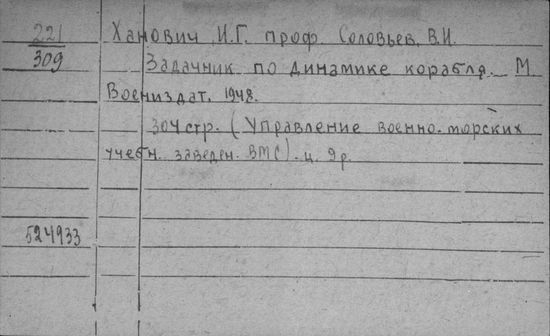 221 Ханович, И.Г. проф. Соловьев, В.И.
309 Задачник по динамике корабля. М.
Воениздат, 1948.
304 стр. (Управление военно-морских
учебн. заведен. ВМС). ц. 9 р.
524933